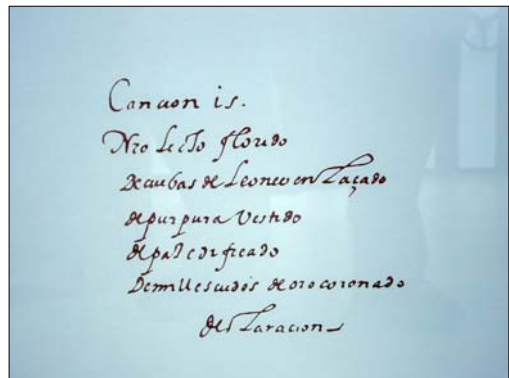 Cancion 15.
Nro Lecto florido
De cuebas de Leones enlaçado
de purpura Vestido
de paz edificado
De mill escudos de oro coronado
declaracion